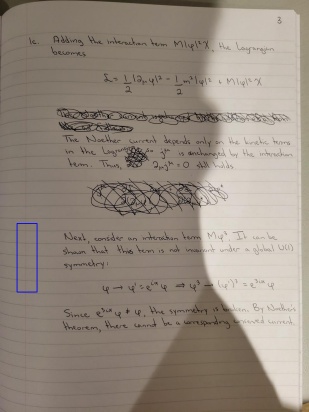 3
1c. Adding the interaction term M|φ|²X, the Lagrangian
becomes
L = 1/2 |∂μφ|² - 1/2 m²|φ|² + M|φ|²X
The Noether current depends only on the kinetic terms
in the Lagrangian, so jᵘ is unchanged by the interaction
term. Thus, ∂μjᵘ = 0 still holds.
Next, consider an interaction term Mφ³. It can be
shown that this term is not invariant under a global U(1)
symmetry:
φ → φ' = e^{iα} φ ⇒ φ³ → (φ')³ = e^{3iα} φ
Since e^{3iα} φ ≠ φ, the symmetry is broken. By Noether's
theorem, there cannot be a corresponding conserved current.